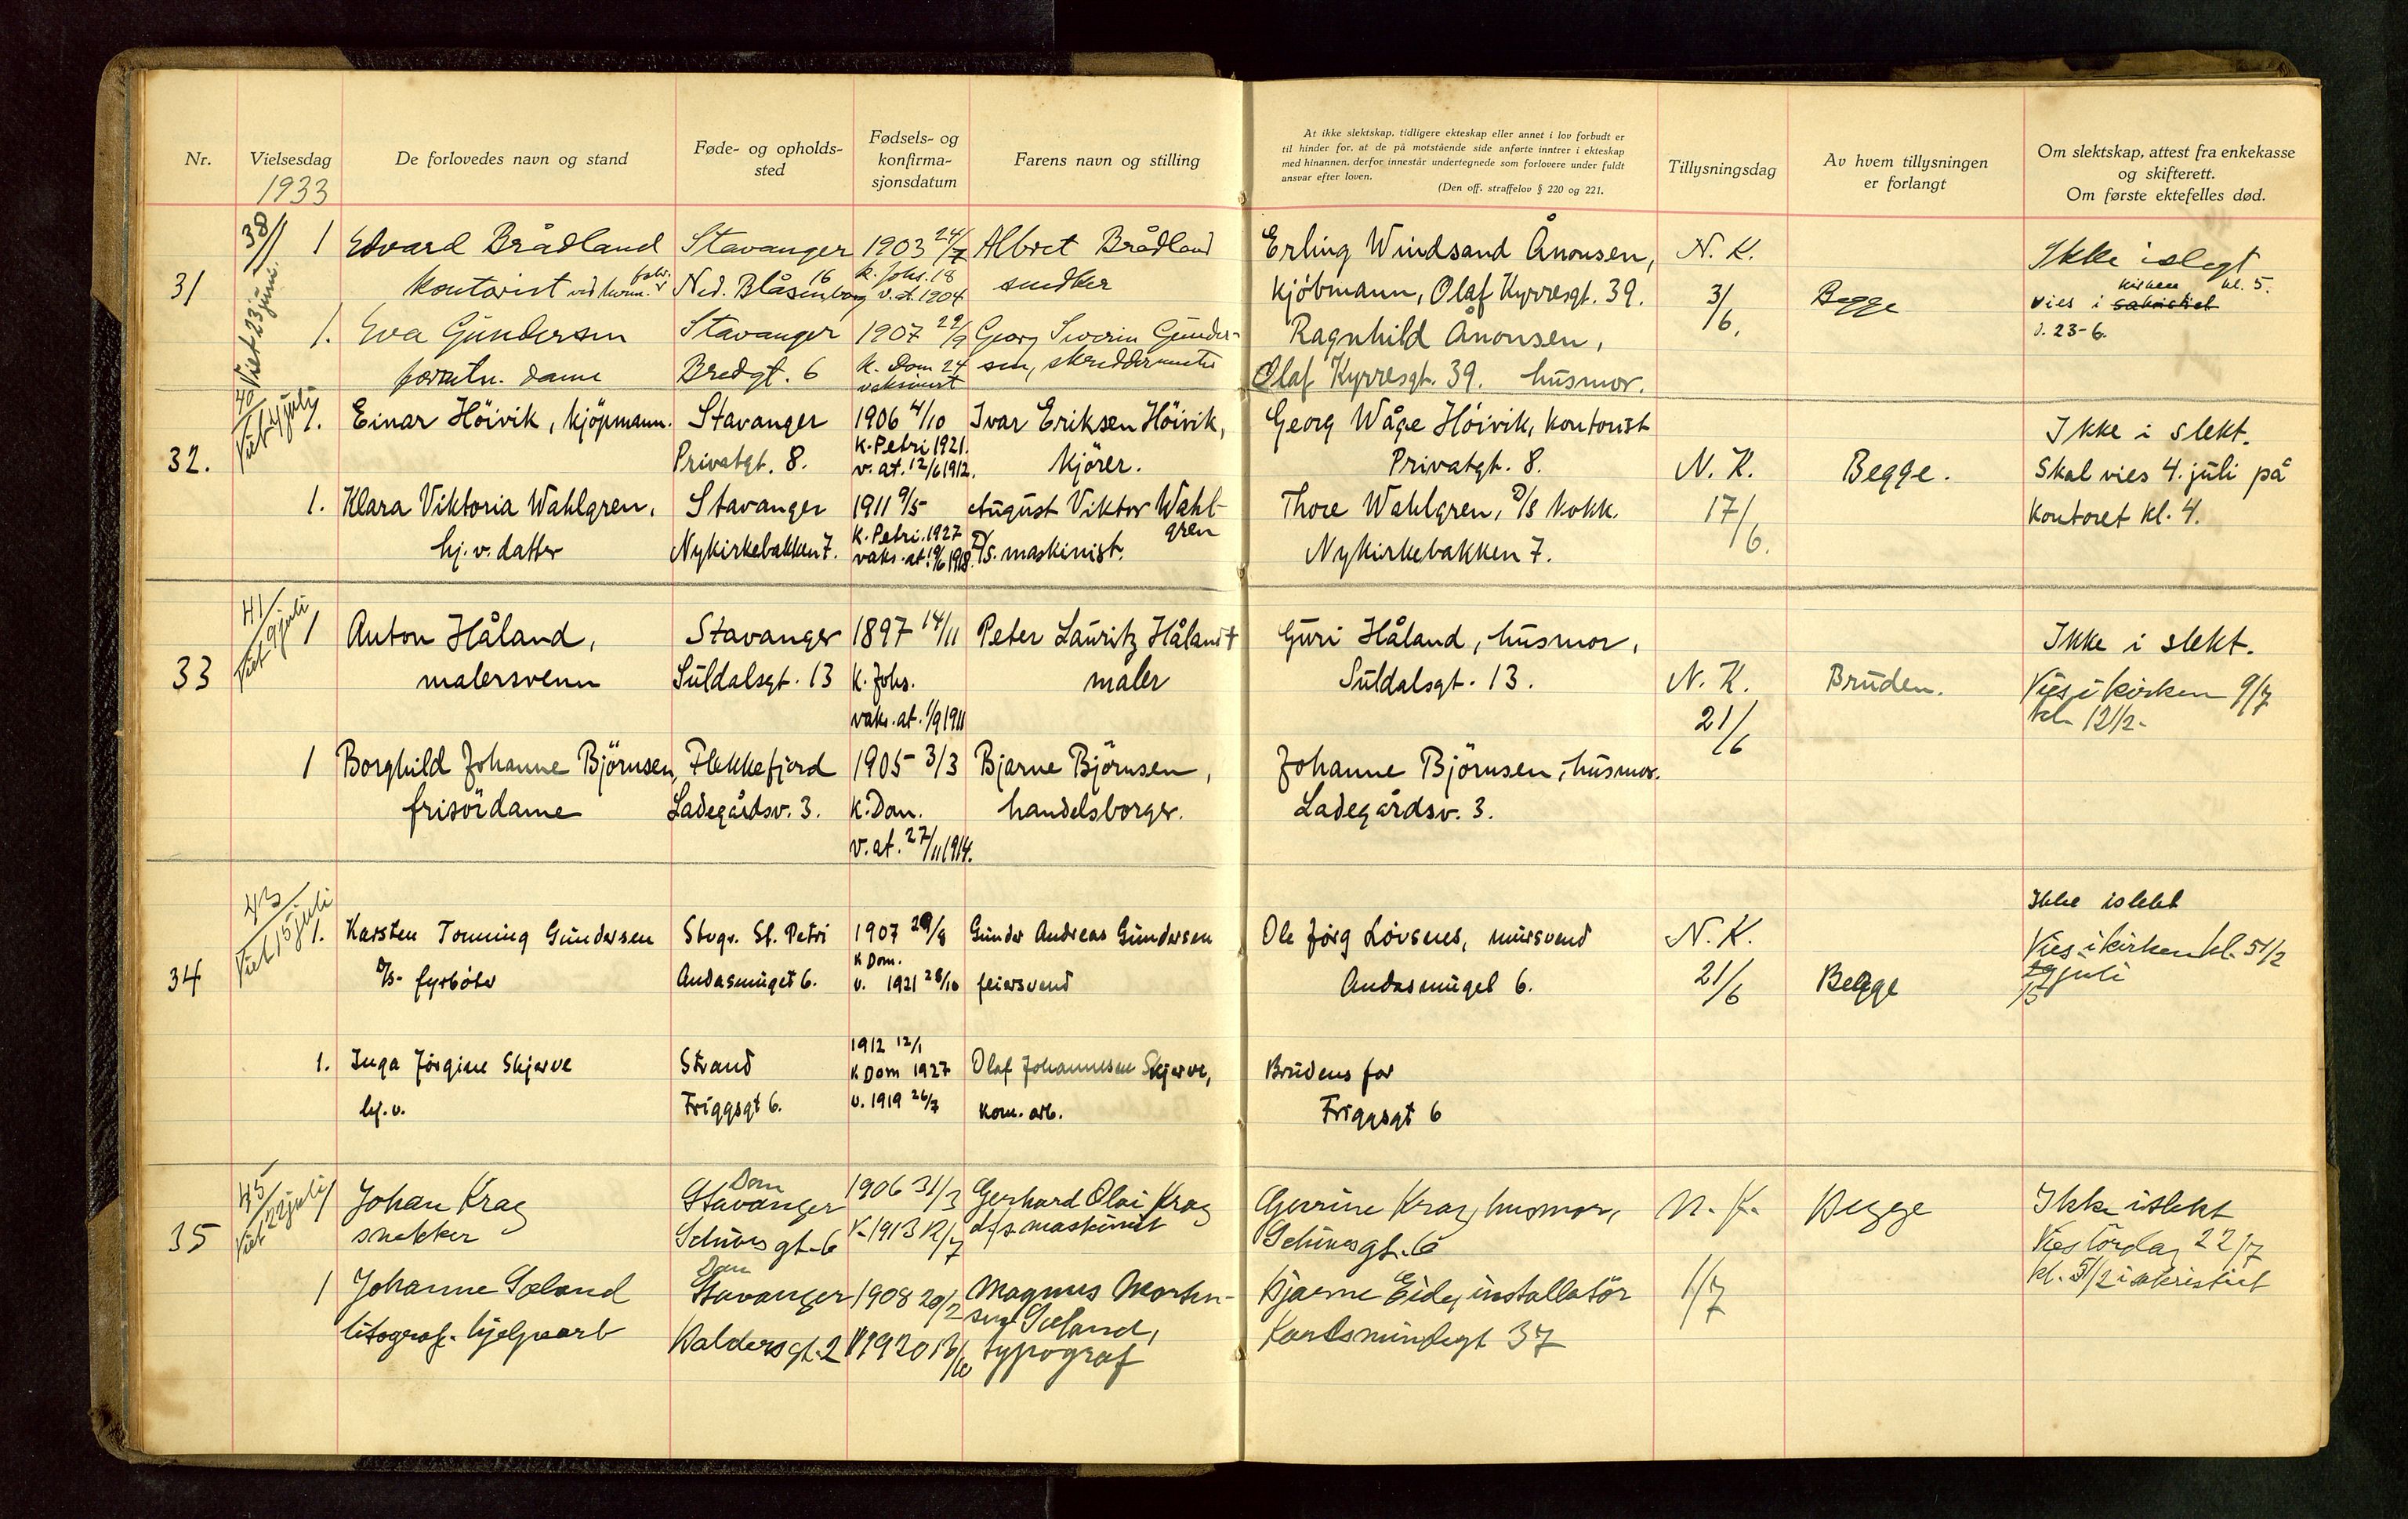 Nr.
Vielsesdag
1933
De forlovedes navn og stand
Føde- og opholds-
sted
Fødsels- og
konfirma-
sjonsdatum
Farens navn og stilling
At ikke slektskap, tidligere ekteskap eller annet i lov forbudt er
til hinder for, at de på motstående side anførte inntrer i ekteskap
med hinannen, derfor innestår undertegnede som forlovere under fuldt
ansvar efter loven.
(Den off. straffelov § 220 og 221.
Tillysningsdag
Av hvem tillysningen
er forlangt
Om slektskap, attest fra enkekasse
og skifterett.
Om første ektefelles død.
31
38/
Viet 23 juni.
1 Edvard Brådland
kontorist ved herm. fabr.
Stavanger
Ned. Blåsenborg 16
1903 24/7
k. Johs. 18
v. at. 1904
Albret Brådland
snedker
Erling Windsand Ånonsen,
kjöbmann, Olaf Kyrresgt. 39.
N. K.
3/6.
Begge
Ikke i slegt
vies i sakristiet kirken kl. 5.
d. 23-6.
1. Eva Gundersen
forretn. dame
Stavanger
Bredgt. 6
1907 29/9
k. Dom 24
vaksinert
Georg Severin Gunder-
sen, skreddermester
Ragnhild Ånonsen,
Olaf Kyrresgt. 39. husmor.
32.
40/
Viet 4 juli
1. Einar Höivik, kjöpmann.
Stavanger
Privatgt. 8.
1906 4/10
K. Petri 1921.
v. at. 12/6 1912.
Ivar Eriksen Höivik,
kjörer.
Georg Wåge Höivik, kontorist
Privatgt. 8.
N. K.
17/6.
Begge.
Ikke i slekt.
Skal vies 4. juli på
kontoret kl. 4.
1. Klara Viktoria Wahlgren,
hj. v. datter
Stavanger
Nykirkebakken 7.
1911 9/5
K. Petri. 1927
vaks. at. 19/6 1918.
August Viktor Wahl-
gren
D/S. maskinist.
Thore Wahlgren, D/S kokk.
Nykirkebakken 7.
33
41/
Viet 9 juli
1 Anton Håland,
malersvenn
Stavanger
Suldalsgt. 13
1897 14/11
K. Johs.
vaks. at. 1/9 1911
Peter Lauritz Håland †
maler
Guri Håland, husmor,
Suldalsgt. 13.
N. K.
21/6
Bruden.
Ikke i slekt.
Vies i kirken 9/7
kl. 12 1/2.
1 Borghild Johanne Björnsen,
frisördame
Flekkefjord
Ladegårdsv. 3.
1905 3/3
K. Dom.
v. at. 27/11 1914.
Bjarne Björnsen,
handelsborger.
Johanne Björnsen, husmor.
Ladegårdsv. 3.
34
43/
Viet 15 juli
1. Karsten Tonning Gundersen
D/S- fyrbøter
Stvgr. St. Petri
Andasmuget 6.
1907 29/8
K Dom.
v. 1921 28/10
Gunder Andreas Gundersen
feiersvend
Ole Jörg Lövsnes, mursvend
Andasmuget 6.
N. K.
21/6
Begge
Ikke i slekt
Vies i kirken kl. 5 1/2
juli
15
1. Inga Jörgine Skjerve
hj. v.
Strand
Friggsgt 6.
1912 12/1
K Dom 1927
v. 1919 26/7
Olaf Johannesen Skjerve,
kom. arb.
Brudens far
Friggsgt 6
35
45/
Viet 22 juli
1 Johan Krag
snekker
Dom
Stavanger
gt. 6
1906 31/3
V. 1913 12/7
Gerhard Olai Krag
d/s maskinist
Gevrine Krag, husmor,
gt. 6
N. K.
1/7
Begge
Ikke i slekt
Vies lördag 22/7
kl. 5 1/2 i sakristiet
1 Johanne Soeland
litograf. hjelpearb
Dom
Stavanger
Valdersgt. 2
1908 20/2
V 1920 13/10
Magnus Morten-
sen Soeland,
typograf
Bjarne Eide, installatör
Karlsmindegt 37